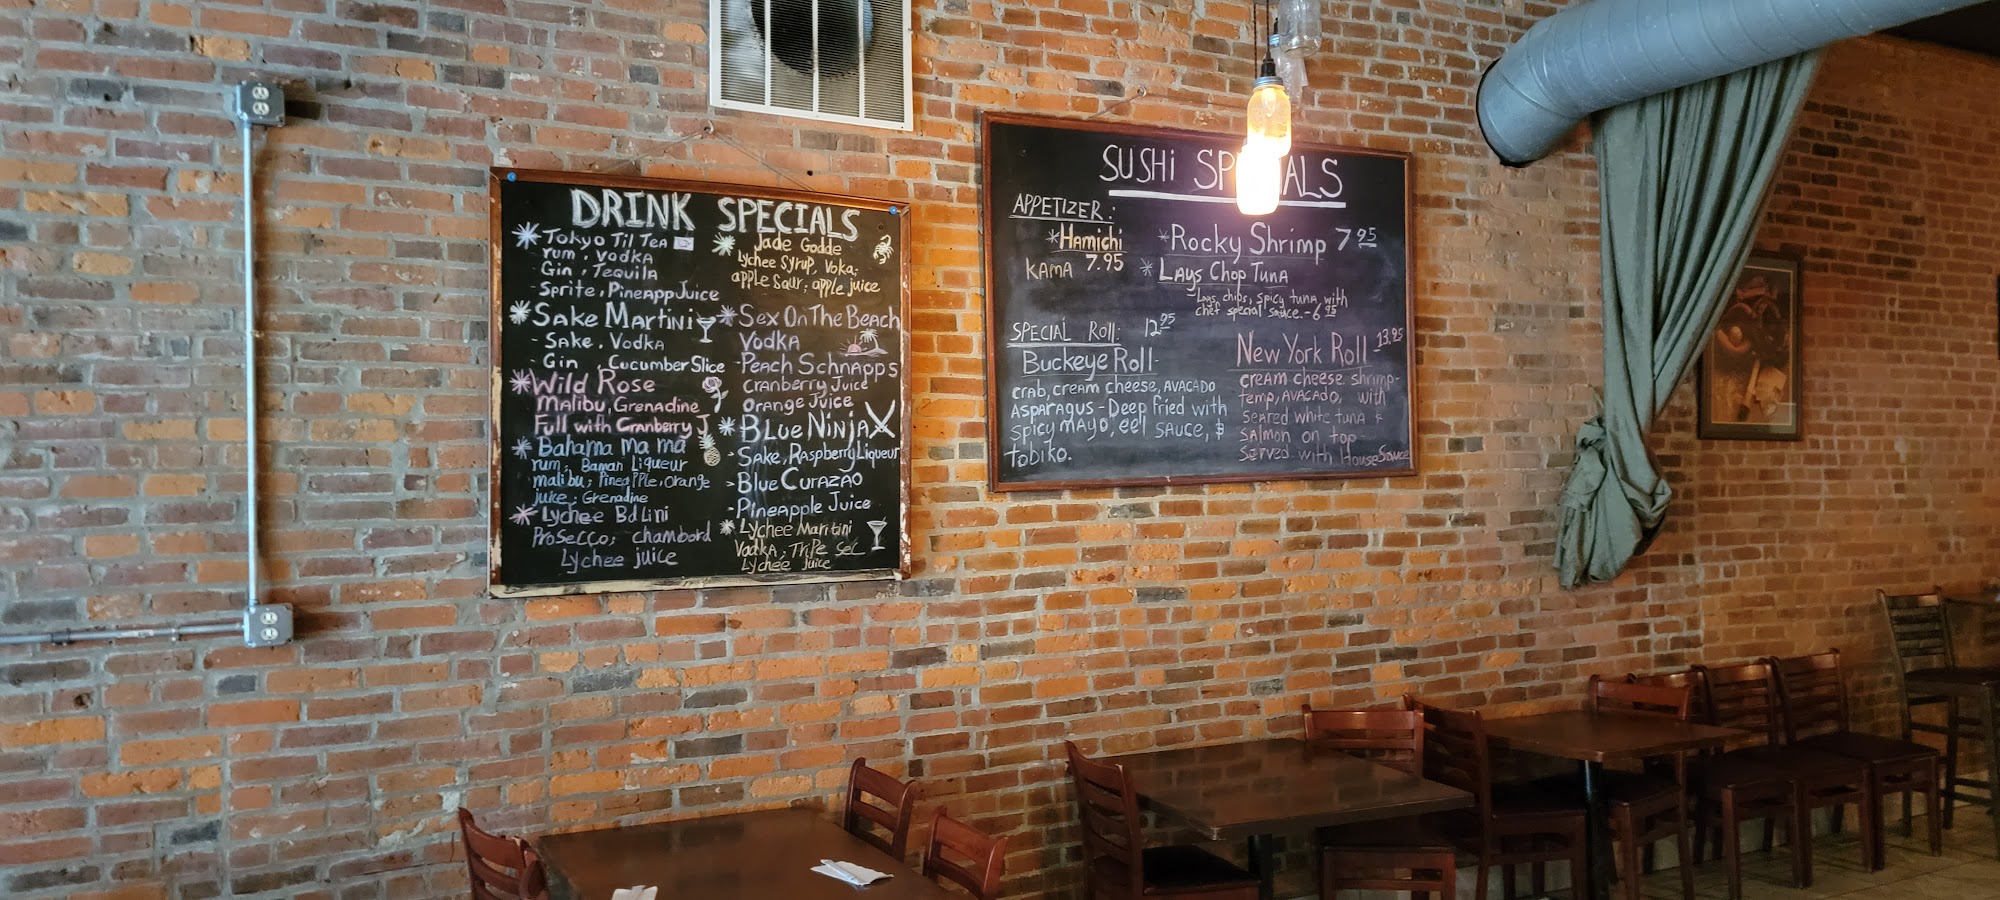 DRINK SPECIALS
Tokyo Til Tea
rum, Vodka
Gin, Tequila
- Sprite, PineappJuice
Sake Martini
- Sake, Vodka
- Gin, Cucumber Slice
Wild Rose
Malibu, Grenadine
Full with Cranberry J
Bahama ma ma
rum; Banan Liqueur
malibu; PineaPPle, orange
juice; Grenadine
Lychee Bellini
Prosecco; chambord
Lychee juice
Jade Godde
Lychee Syrup, Voka;
apple Saur; apple juice
Sex On The Beach
Vodka
- Peach Schnapps
cranberry Juice
orange Juice
Blue Ninja
- Sake, Raspberry Liqueur
- Blue Curazao
- Pineapple Juice
Lychee Maritini
Vodka; TriPe Sec
Lychee juice
SUSHi SPECIALS
APPETIZER:
*Hamichi
KAMA 7.95
*Rocky Shrimp 7 95
* Lays Chop Tuna
- Lays, chips, spicy tuna, with
chef special sauce - 6 95
SPECIAL ROLL: 12 95
Buckeye Roll-
crab, cream cheese, AVACADO
Asparagus - Deep fried with
spicy mayo, eel sauce, &
tobiko.
New York Roll - 13.95
cream cheese shrimp-
temp, AVACADO, with
seared white tuna &
salmon on top-
served with House Sauce